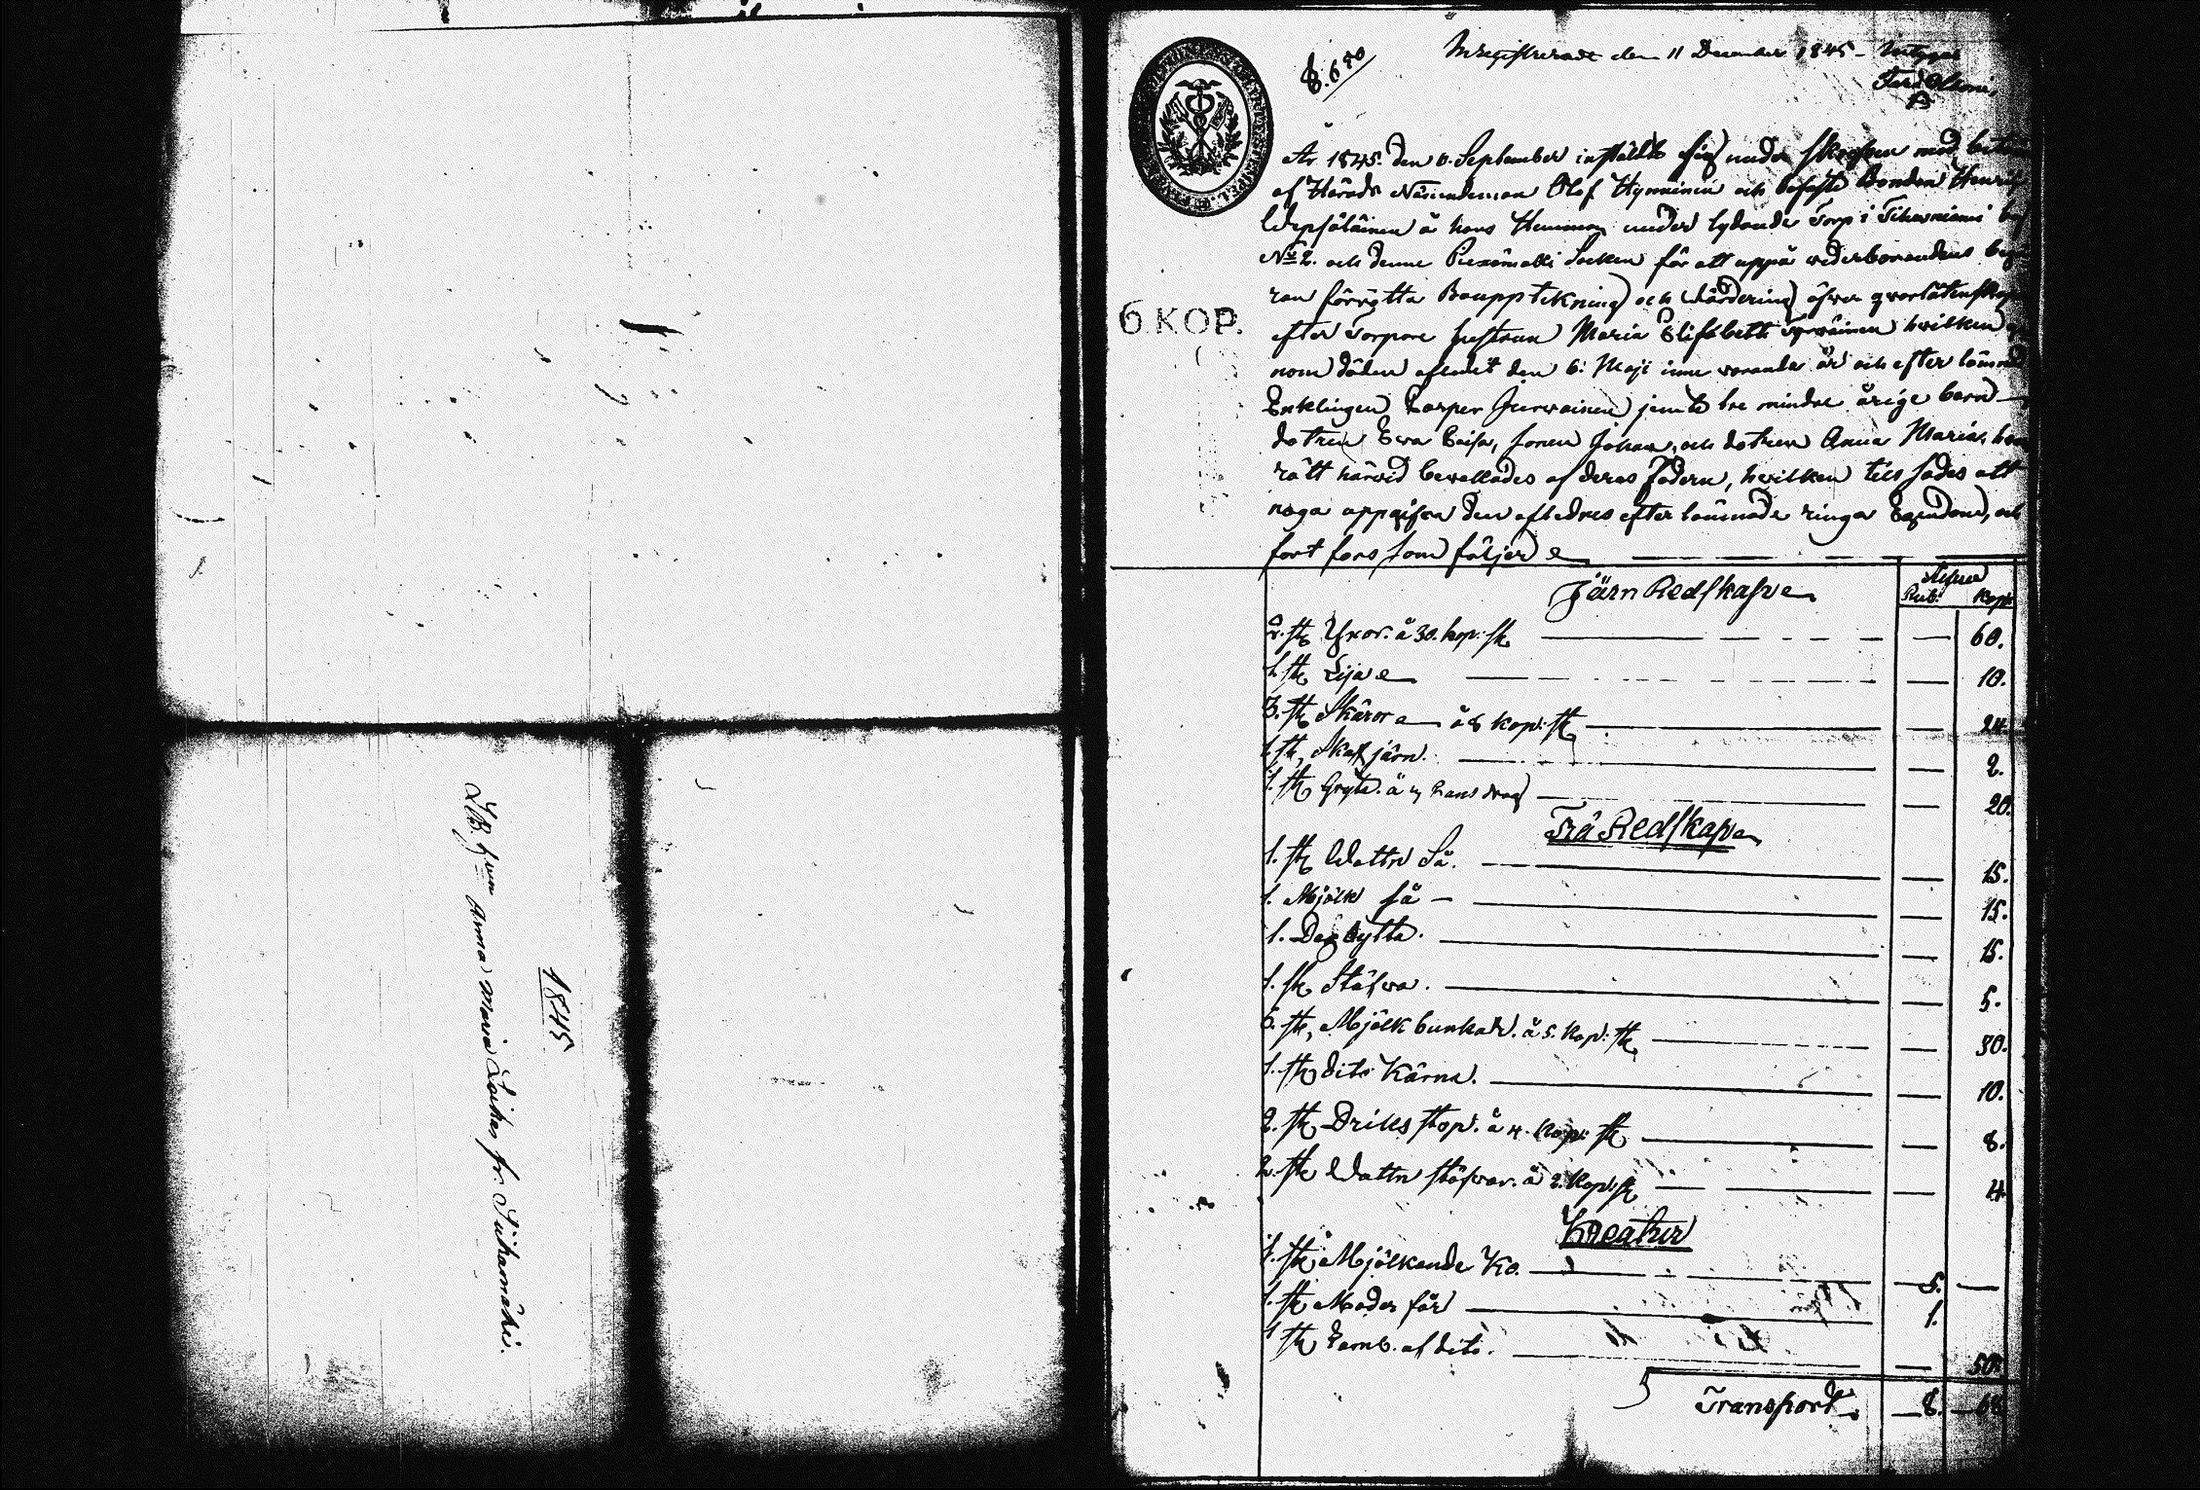 1845
LB. fr: Anna Maria Loikas fr. Suihamäki.
8. 6 50
Inregistrerade den 11 December 1845 – Intygar
6 KOP.
År 1845. den 6. September instälde sig under skrefven med biträde
af Härads Nämndeman Olof Hynninen och Bofaste Bonden Henrik
Wepsäläinen å hans Hemman under lydande Torp i Tihusniemi by
No 2. och denne Piexämäki Socken för att uppå wederbörandens begä
ran förrätta Bouppteckning och Wärdering öfver qvarlåtenskapen
efter Torpare hustrun Maria Elisabeth hvilken ge
nom döden afledit den 6. Maji inne varande år och efter lämnat
Enklingen Casper Jurvainen jemte tre mindre årige barn –
dotren Eva Caisa, sonen Johan, och dotren Anna Maria,
rätt härvid bevakades af deras Fadern, hvilken till sades att
noga uppgifva den aflednes efter lämnade ringa Egendom, och
fort fors som följer
Järn Redskaper
Silfver
Rub: Kop:
2. st Yxor. à 30. kop: st — 60.
1. st Lija — 10.
3. st Skäror à 8 kop: st — 24.
1. st, Skaf järn. — 2.
1. st Gryta. — 20.
Trä Redskaper
1. st Wattn Så. — 15.
1. Mjölk så — 15.
1. Deg bytta. — 15.
1. st Stäfva. — 5.
6. st, Mjölk bunkar. à 5. Kop: st — 30.
1. st dito Kärna. — 10.
2. st Dricks stop. à 4. Kop: st — 8.
2. st Wattn stäfvor. à 2. Kop: st — 4
Kreatur
1. st Mjölkande Ko. — 5. —
1. st Moder får — 1.
1 st Lamb. af dito. — 50.
Transport. 8. 68